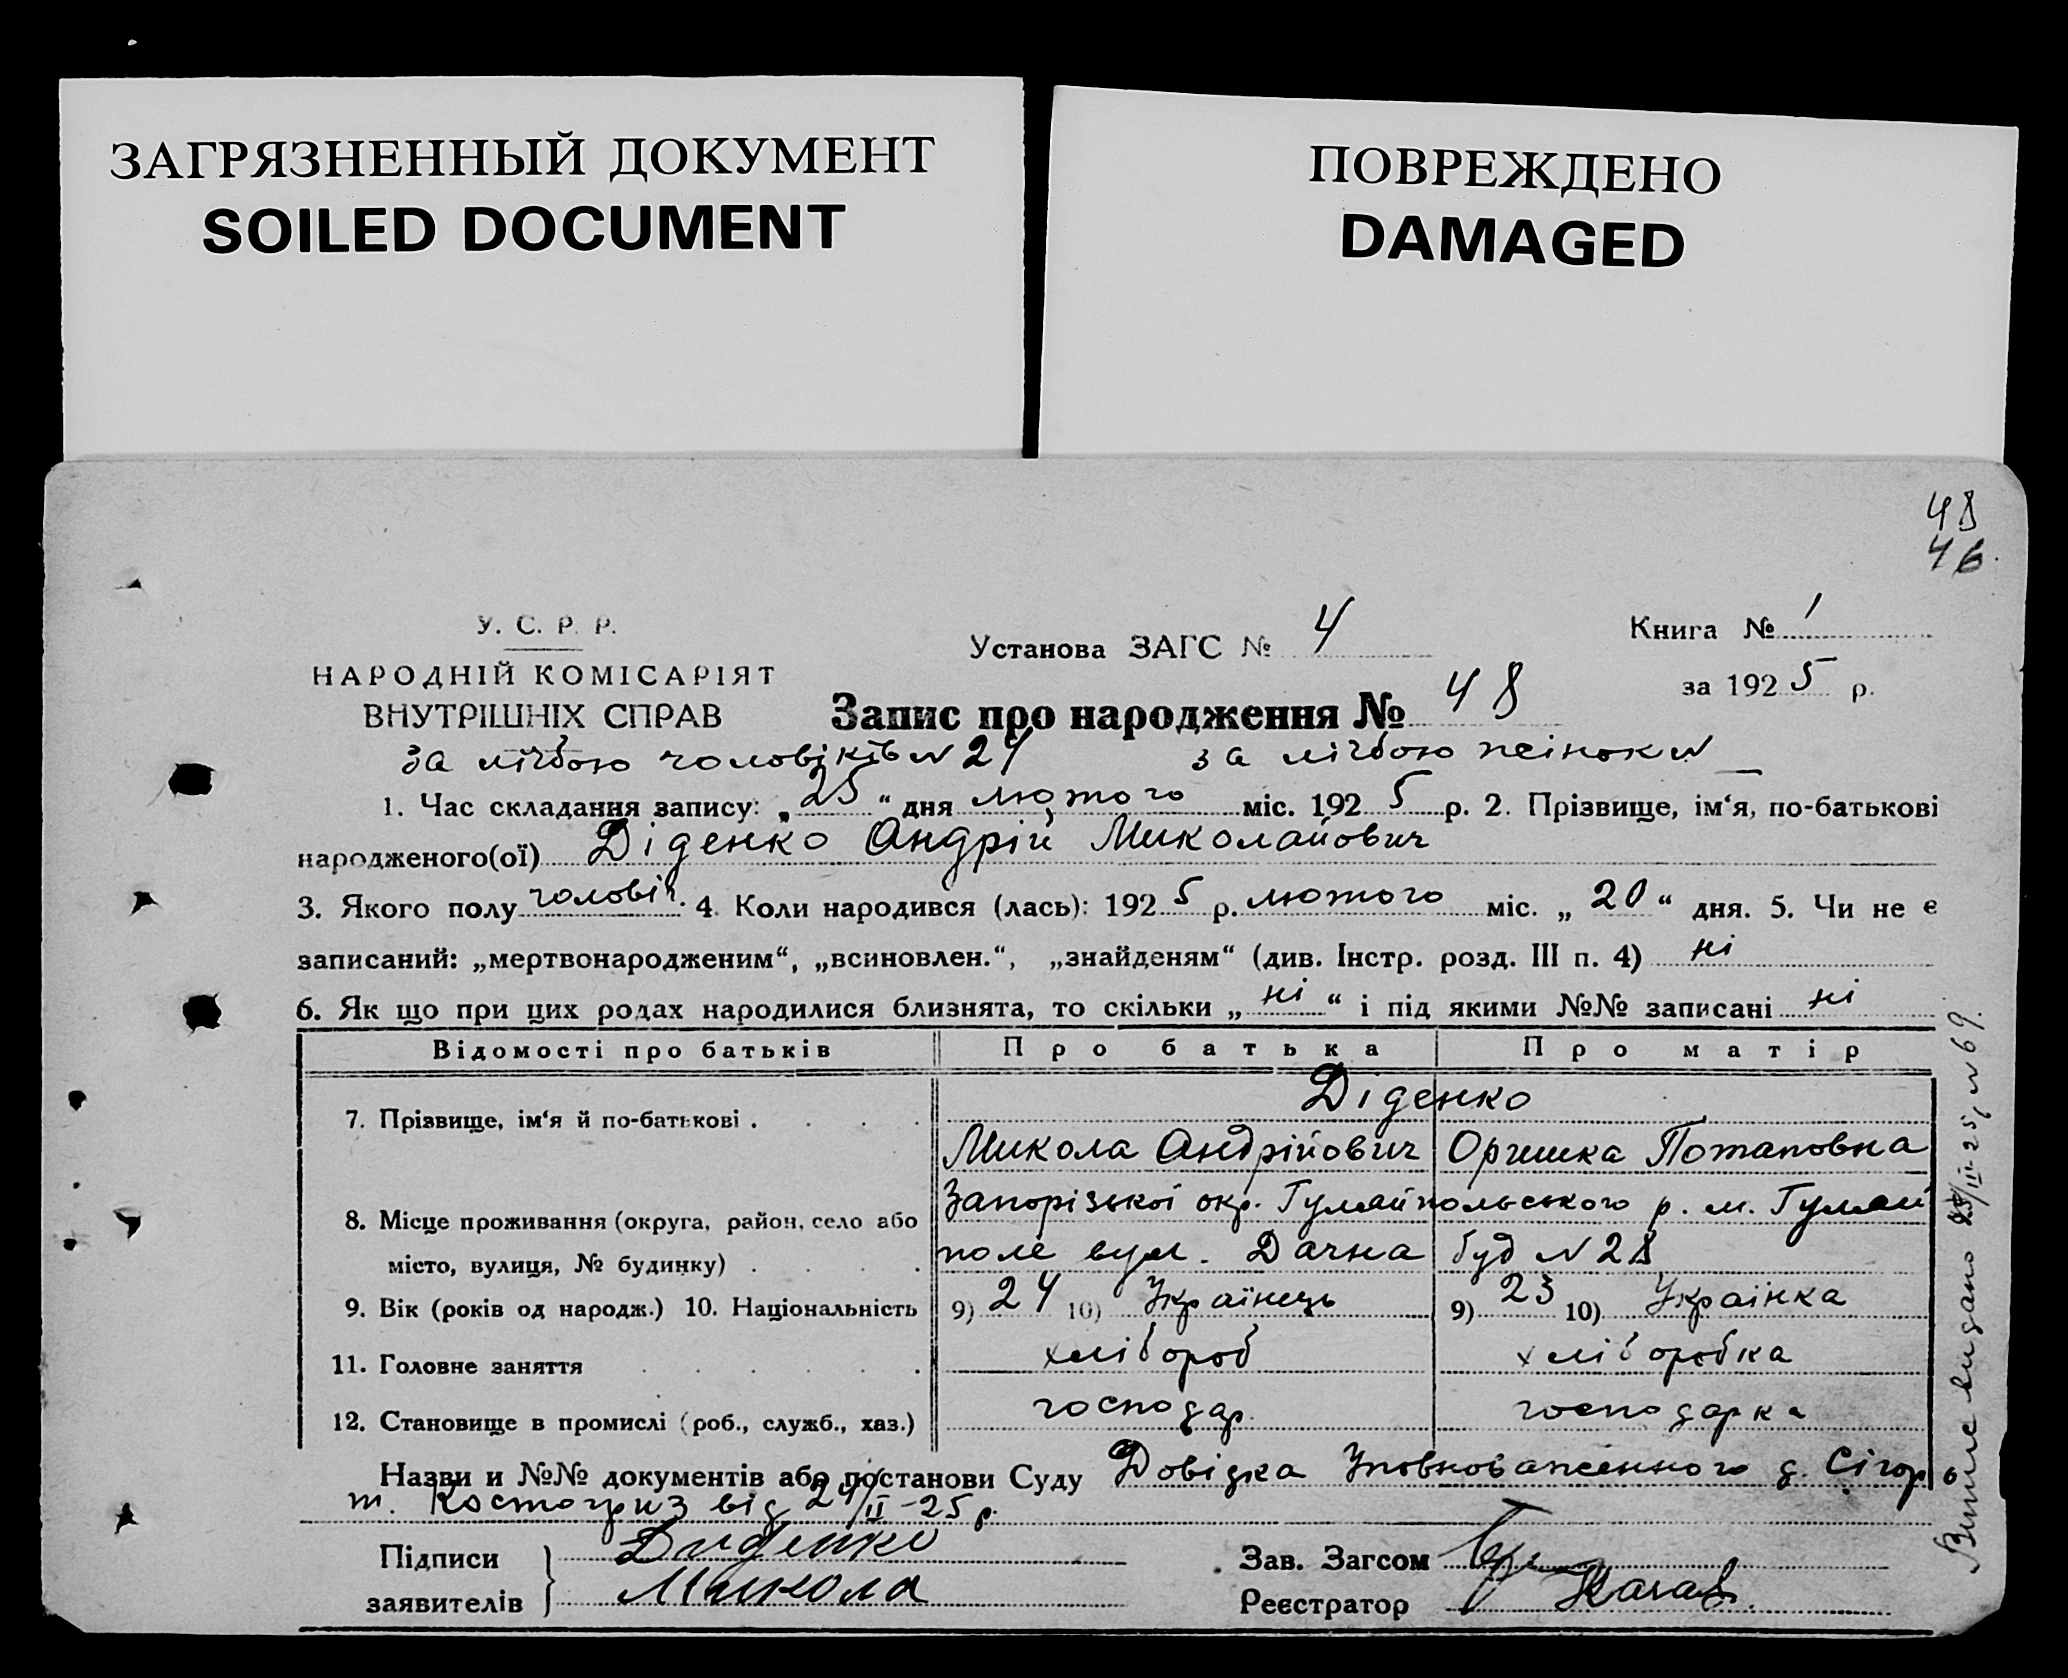 ЗАГРЯЗНЕННЫЙ ДОКУМЕНТ
SOILED DOCUMENT
ПОВРЕЖДЕНО
DAMAGED
48
46.
У. С. Р. Р.
НАРОДНІЙ КОМІСАРІЯТ
ВНУТРІШНІХ СПРАВ
Установа ЗАГС № 4
Книга № 1
за 1925 р.
Запис про народження № 48
за лічбою чоловіків N 24 за лічбою жінок N —
1. Час складання запису: „25“ дня лютого міс. 1925 р. 2. Прізвище, ім‘я, по-батькові
народженого(ої) Діденко Андрій Миколайович
3. Якого полу чоловіч. 4. Коли народився (лась): 1925 р. лютого міс. „20“ дня. 5. Чи не є
записаний: „мертвонародженим“, „всиновлен.“, „знайденям“ (див. Інстр. розд. III п. 4) ні
6. Як що при цих родах народилися близнята, то скільки „ні“ і під якими №№ записані ні
Відомості про батьків Про батька Про матір
7. Прізвище, ім‘я й по-батькові . Діденко
Микола Андрійович Оришка Потаповна
8. Місце проживання (округа, район, село або місто, вулиця, № будинку) . Запорізької окр. Гуляйпольського р. м. Гуляй
поле вул. Дачна буд N 28
9. Вік (років од народж.) 10. Національність 9) 24 10) Українець 9) 23 10) Українка
11. Головне заняття хлібороб хліборобка
12. Становище в промислі (роб., служб., хаз.) господар. господарка
Назви и №№ документів або постанови Суду Довідка Уповноваженного д.
т. Костогриз від 24/II-25 р.
Підписи заявителів Диденко
Микола
Зав. Загсом
Реєстратор
Випис видано /II-25, N 69.